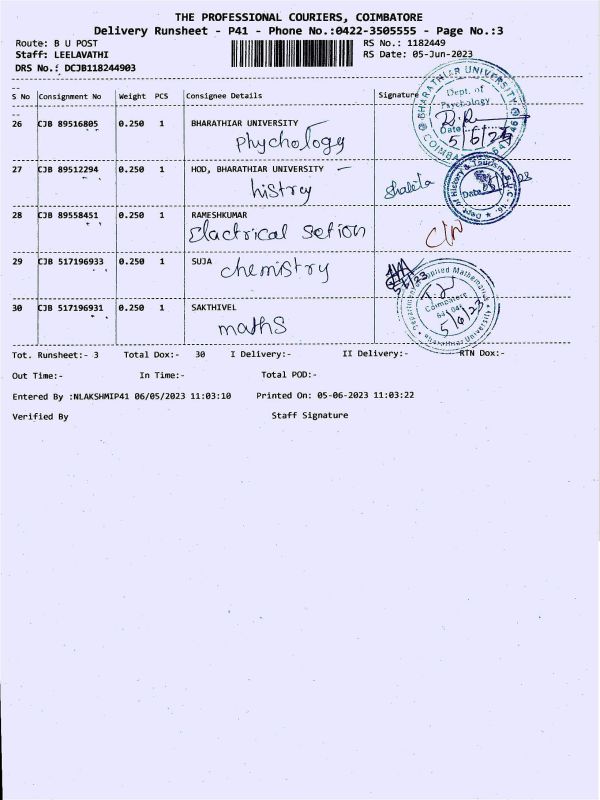 THE PROFESSIONAL COURIERS, COIMBATORE
Delivery Runsheet - P41 - Phone No.:0422-3505555 - Page No.:3
Route: B U POST RS No.: 1182449
Staff: LEELAVATHI RS Date: 05-Jun-2023
DRS No.: DCJB118244903
S No Consignment No Weight PCS Consignee Details Signature
26 CJB 89516805 0.250 1 BHARATHIAR UNIVERSITY
phychology
BHARATHIAR UNIVERSITY
Dept. of
Psychology
Date
5/6/23
27 CJB 89512294 0.250 1 HOD, BHARATHIAR UNIVERSITY
histrey
Date
28 CJB 89558451 0.250 1 RAMESHKUMAR
Elactrical setion
29 CJB 517196933 0.250 1 SUJA
chemistry
30 CJB 517196931 0.250 1 SAKTHIVEL
maths
Coimbatore
641 046
5/6/23
Tot. Runsheet:- 3 Total Dox:- 30 I Delivery:- II Delivery:- RTN Dox:-
Out Time:- In Time:- Total POD:-
Entered By :NLAKSHMIP41 06/05/2023 11:03:10 Printed On: 05-06-2023 11:03:22
Verified By Staff Signature